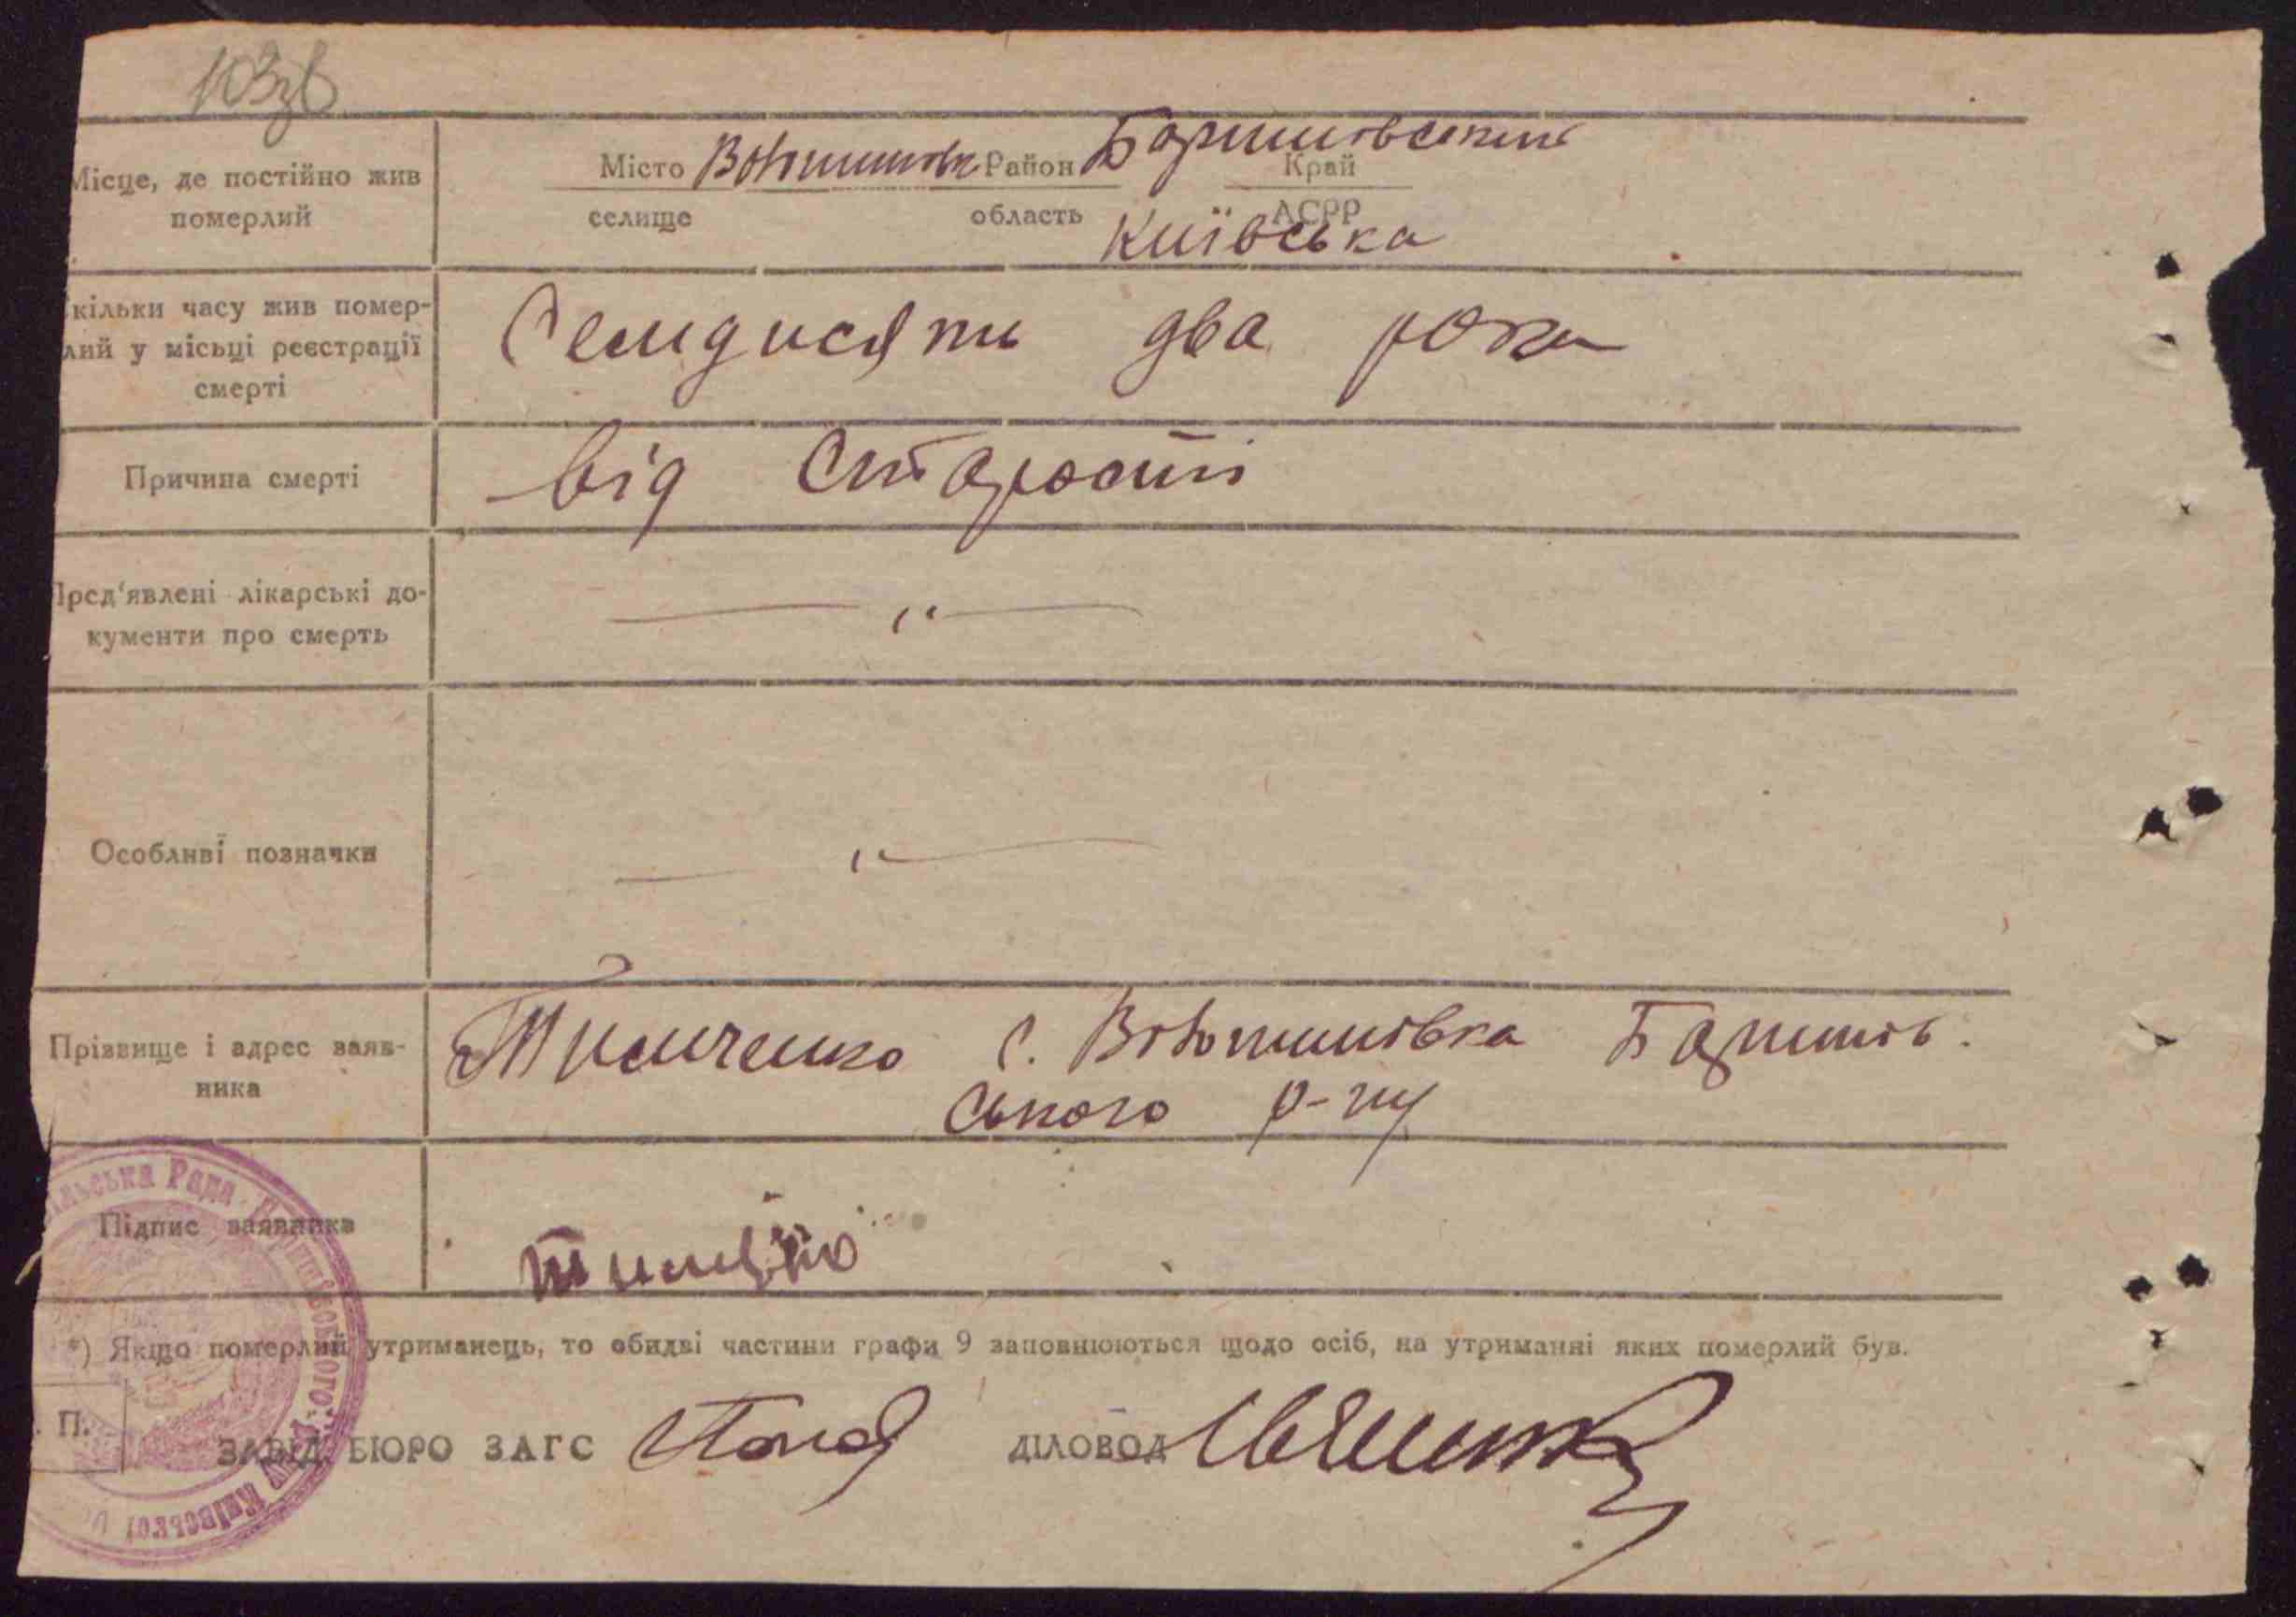 103зв
Місце, де постійно жив
померлий
Місто Волошинівка Район Баришівський Край
селище область АСРР
Київська
кільки часу жив помер-
лий у місьці реєстрації
смерті
Семидисяти два роки
Причина смерті
від старості
Пред'явлені лікарські до-
кументи про смерть
— " —
Особливі позначки
— " —
Прізвище і адрес заяв-
ника
Тимченко с. Волошинівка Баришів.
ського р-ну
Підпис заявника
*) Якщо померлий утриманець, то обидві частини графи 9 заповнюються щодо осіб, на утриманні яких померлий був.
П.
ЗАВІД. БЮРО ЗАГС
ДІЛОВОД
сільська Рада Баришівського р-ну Київської